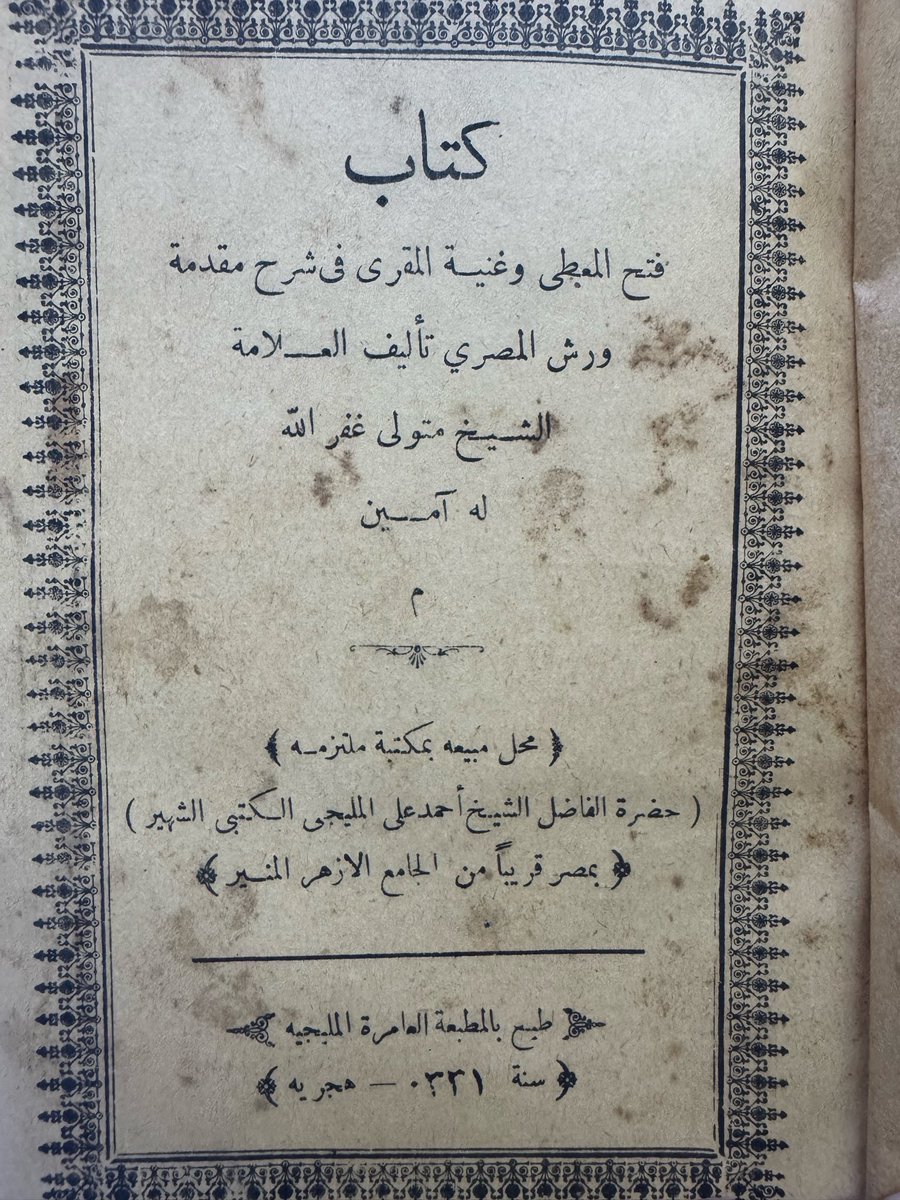 كتاب
فتح المعطى وغنية المقرى فى شرح مقدمة
ورش المصري تأليف العلامة
الشيخ متولى غفر الله
له آمين
م
﴿ محل مبيعه بمكتبة ملتزمه ﴾
( حضرة الفاضل الشيخ أحمد على المليجى الكتبى الشهير )
﴿ بمصر قريباً من الجامع الازهر المنير ﴾
طبع بالمطبعة العامرة المليجيه
﴿ سنة ٠٣٣١ — هجريه ﴾